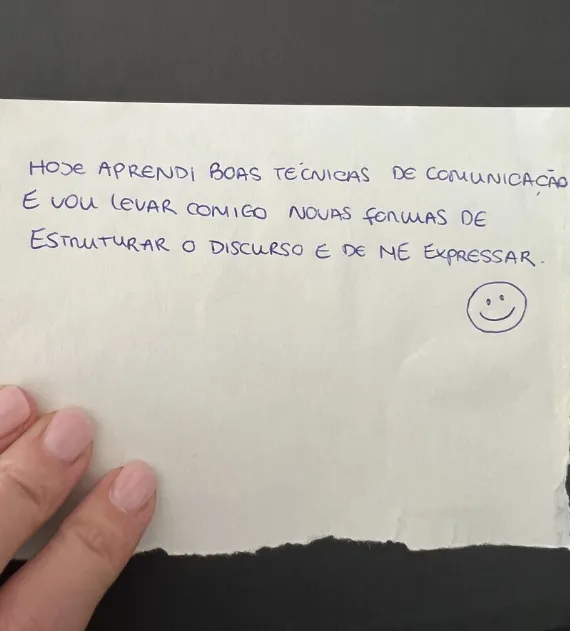 HOJE APRENDI BOAS TÉCNICAS DE COMUNICAÇÃO
E VOU LEVAR COMIGO NOVAS FORMAS DE
ESTRUTURAR O DISCURSO E DE ME EXPRESSAR.